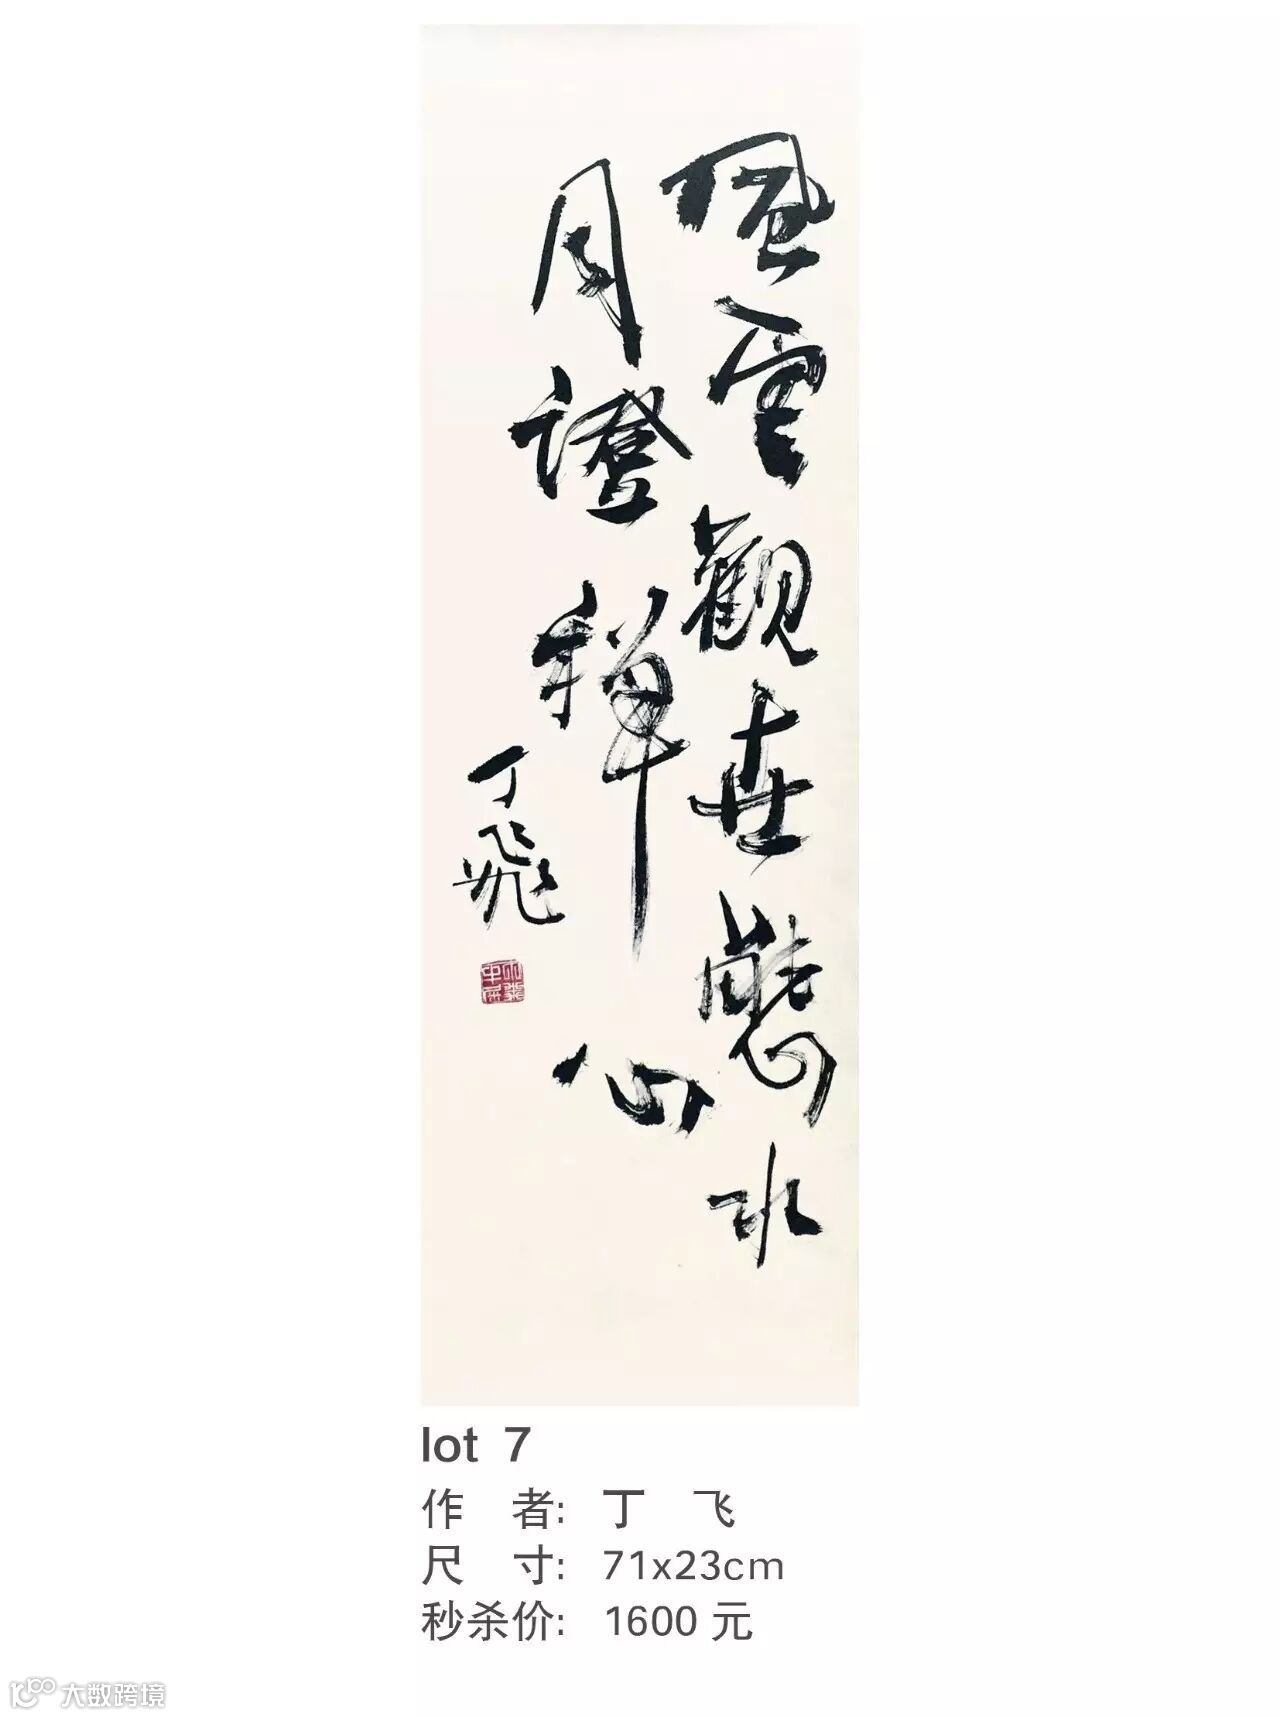 風雲觀世態水
月證禪心
丁飛
lot 7
作 者: 丁 飞
尺 寸: 71x23cm
秒杀价: 1600 元
大数跨境